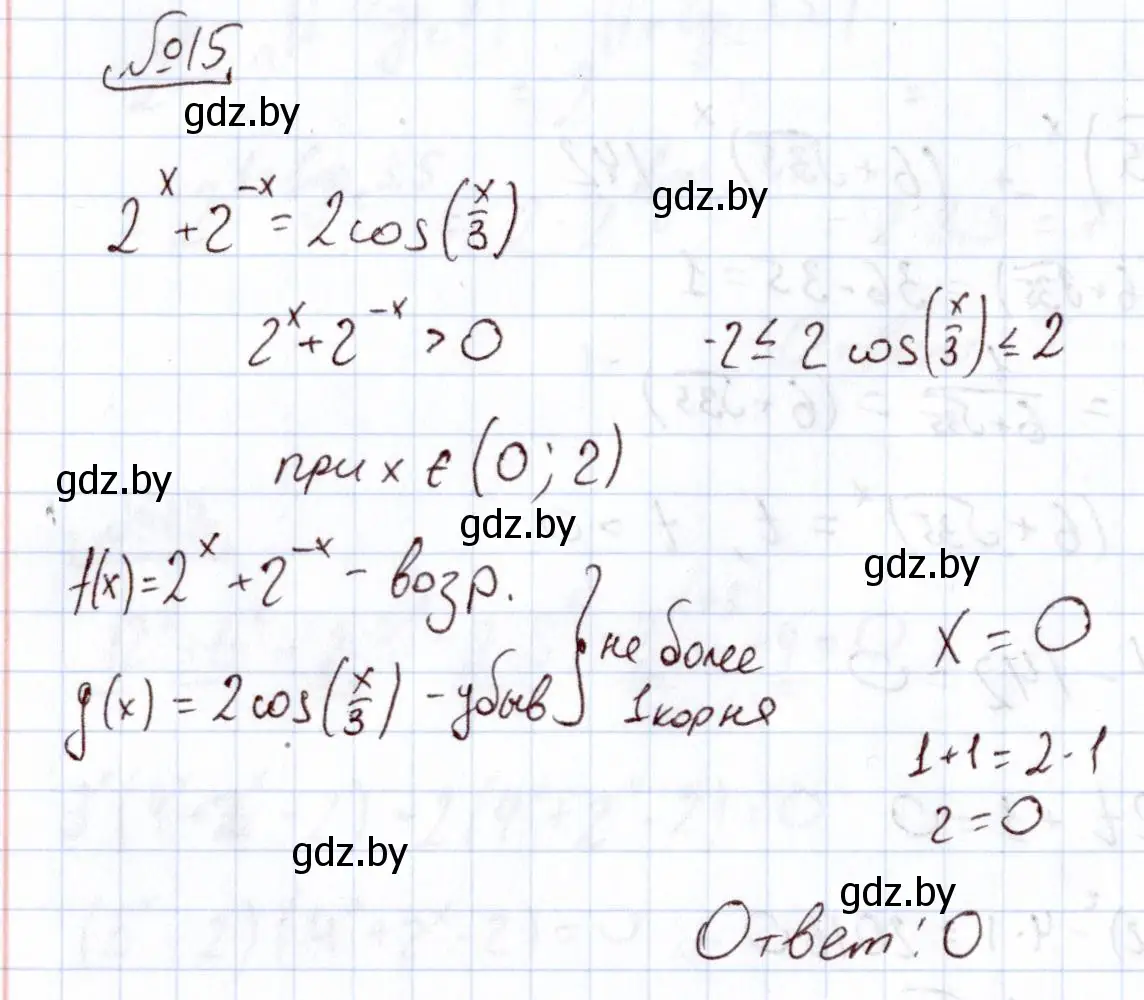 №15
gdz.by
2^x + 2^{-x} = 2cos(x/3)
gdz.by
2^x + 2^{-x} > 0
-2 ≤ 2 cos(x/3) ≤ 2
при x ∈ (0; 2)
gdz.by
gdz.by
f(x) = 2^x + 2^{-x} - возр.
gdz.by
g(x) = 2cos(x/3) - убыв
} не более
1 корня
x = 0
1 + 1 = 2 · 1
2 = 0
gdz.by
gdz.by
Ответ: 0